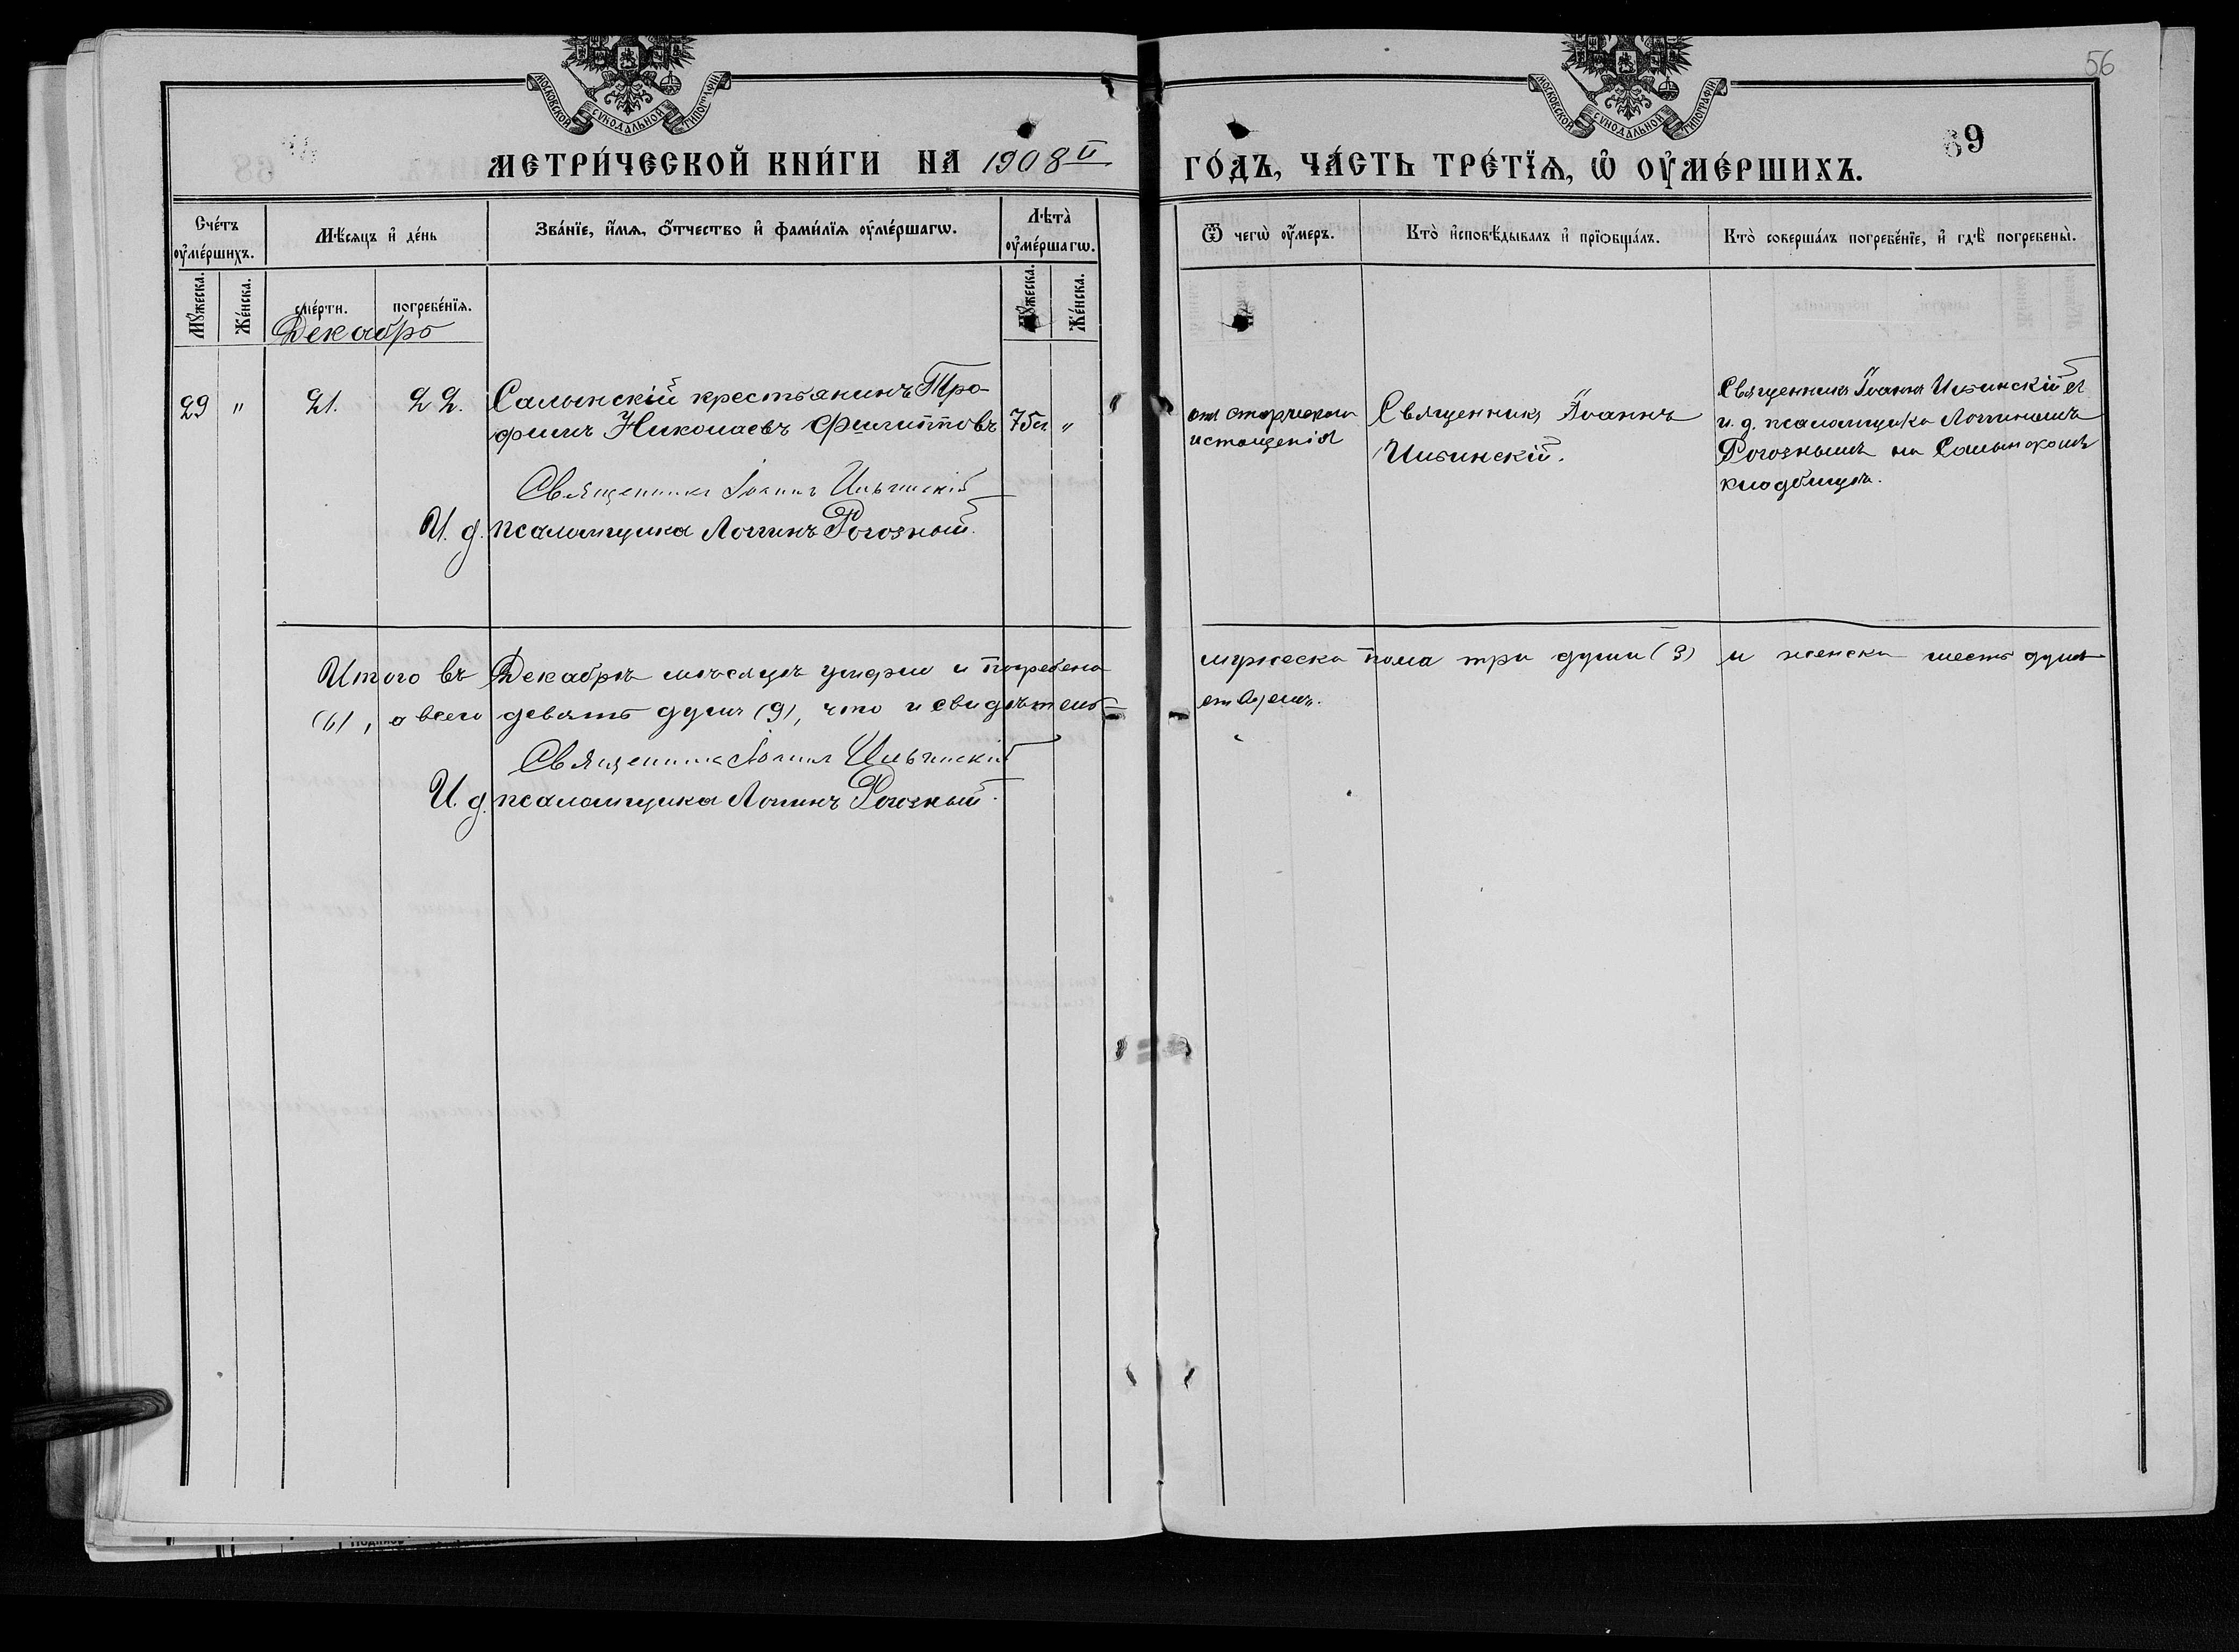 56
МОСКОВСКОЙ СѴНОДАЛЬНОЙ ТИПОГРАФІИ
МОСКОВСКОЙ СѴНОДАЛЬНОЙ ТИПОГРАФІИ
69
МЕТРИ́ЧЕСКОЙ КНИ́ГИ НА 1908й ГО́ДЪ, ЧА́СТЬ ТРЕ́ТЇѦ, Ѽ ОУ҆МЕ́РШИХЪ.
Сче́тъ оу҆ме́ршихъ.
Мѣ́сяцъ и҆ де́нь
Зва́нїе, и҆́мѧ, ѻ҆́тчество и҆ фами́лїѧ оу҆ме́ршагѡ.
Лѣта̀ оу҆ме́ршагѡ.
Ѿ чегѡ̀ оу҆́меръ.
Кто̀ и҆сповѣ́дывалъ и҆ прїѻбща́лъ.
Кто̀ соверша́лъ погребе́нїе, и҆ гдѣ̀ погребены̀.
Мꙋ́жеска.
Же́нска.
сме́рти.
погребе́нїѧ.
Мꙋ́жеска.
Же́нска.
Декабрь
29 " 21. 22. Салынскій крестьянинъ Тро-
фимъ Николаевъ Филипповъ 75л. "
отъ старческаго
истощенія
Священникъ Іоаннъ
Ильинскій.
Священникъ Іоаннъ Ильинскій съ
и. д. псаломщика Логиномъ
Рогознымъ на Салынскомъ
кладбищѣ.
Священникъ Іоаннъ Ильинскій
И. д. псаломщика Логинъ Рогозный.
Итого въ Декабрѣ мѣсяцѣ умерло и погребено мужеска пола три души (3) и женска шесть душъ
(6), а всего девять душъ (9), что и свидѣтель-ствуемъ.
Священникъ Іоаннъ Ильинскій
И. д. псаломщика Логинъ Рогозный.